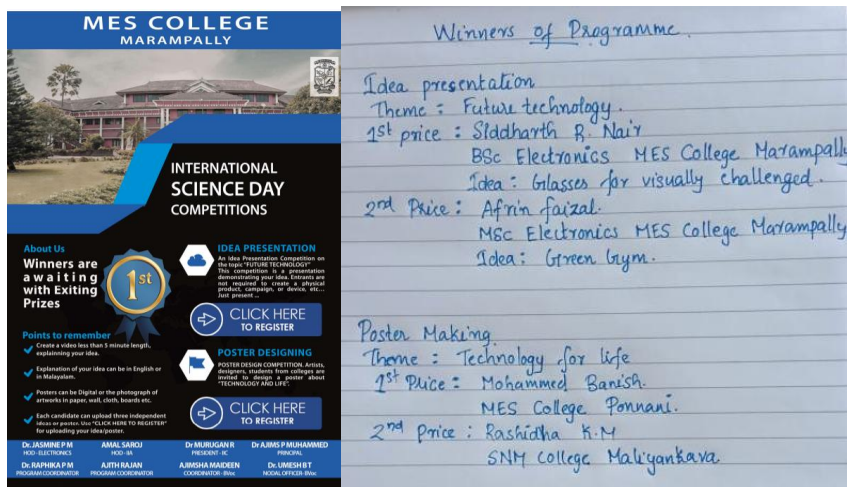 MES COLLEGE
MARAMPALLY
INTERNATIONAL
SCIENCE DAY
COMPETITIONS
About Us
Winners are
awaiting
with Exiting
Prizes
1st
Points to remember
Create a video less than 5 minute length,
explainning your idea.
Explanation of your idea can be in English or
in Malayalam.
Posters can be Digital or the photograph of
artworks in paper, wall, cloth, boards etc.
Each candidate can upload three independent
ideas or poster. Use "CLICK HERE TO REGISTER"
for uploading your idea/poster.
IDEA PRESENTATION
An Idea Presentation Competition on
the topic "FUTURE TECHNOLOGY"
This competition is a presentation
demonstrating your idea. Entrants are
not required to create a physical
product, campaign, or device, etc...
Just present ...
CLICK HERE
TO REGISTER
POSTER DESIGNING
POSTER DESIGN COMPETITION. Artists,
designers, students from colleges are
invited to design a poster about
"TECHNOLOGY AND LIFE".
CLICK HERE
TO REGISTER
Dr. JASMINE P M
HOD - ELECTRONICS
AMAL SAROJ
HOD - IIA
Dr MURUGAN R
PRESIDENT - IIC
Dr AJIMS P MUHAMMED
PRINCIPAL
Dr. RAPHIKA P M
PROGRAM COORDINATOR
AJITH RAJAN
PROGRAM COORDINATOR
AJIMSHA MAIDEEN
COORDINATOR - BVoc
Dr. UMESH B T
NODAL OFFICER-BVoc
Winners of Programme.
Idea presentation
Theme : Future technology.
1st price : SIddharth R. Nair
BSc Electronics MES College Marampally
Idea : Glasses for visually challenged.
2nd Price : Afrin faizal.
MSc Electronics MES College Marampally
Idea : Green Gym.
Poster Making
Theme : Technology for life
1st Price : Mohammed Banish.
MES College Ponnani.
2nd Price : Rashidha K.M
SNM College Maliyankara